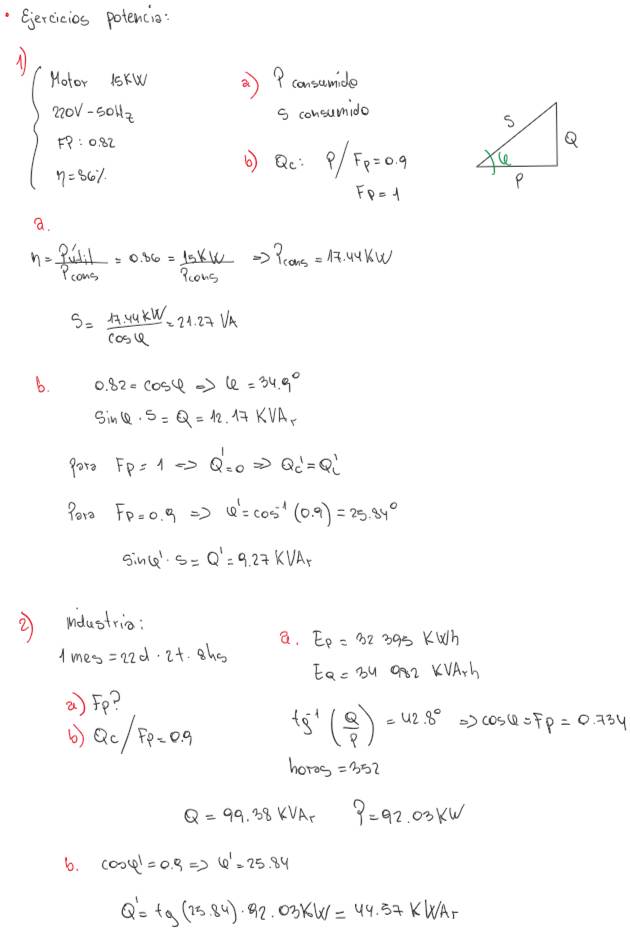 • Ejercicios potencia:
1)
Motor 15KW
220V - 50Hz
FP: 0.82
η = 86%
a) P consumido
S consumido
b) Qc: P / Fp = 0.9
Fp = 1
S
Q
φ
P
a.
η = Pútil / Pcons = 0.86 = 15KW / Pcons => Pcons = 17.44 KW
S = 17.44 KW / cos φ = 21.27 VA
b. 0.82 = cos φ => φ = 34.9°
sin φ · S = Q = 12.17 KVAr
para Fp = 1 => Q' = 0 => Qc' = QL'
Para Fp = 0.9 => φ' = cos⁻¹ (0.9) = 25.84°
sin φ' · S = Q' = 9.27 KVAr
2) industria:
1 mes = 22d · 2t · 8hs
a) Fp?
b) Qc / Fp = 0.9
a. Ep = 32 395 KWh
EQ = 34 982 KVArh
tg⁻¹ (Q/P) = 42.8° => cos φ = Fp = 0.734
horas = 352
Q = 99.38 KVAr P = 92.03 KW
b. cos φ' = 0.9 => φ' = 25.84
Q' = tg (25.84) · 92.03 KW = 44.57 KWAr